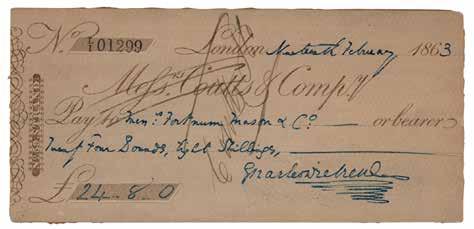 No. L/T 01299 London Nineteenth February 1863
Messrs. Coutts & Compy.
Pay to Messrs. Fortnum Mason & Co. or bearer
Twenty Four Pounds, Eight Shillings,
£ 24 . 8 . 0